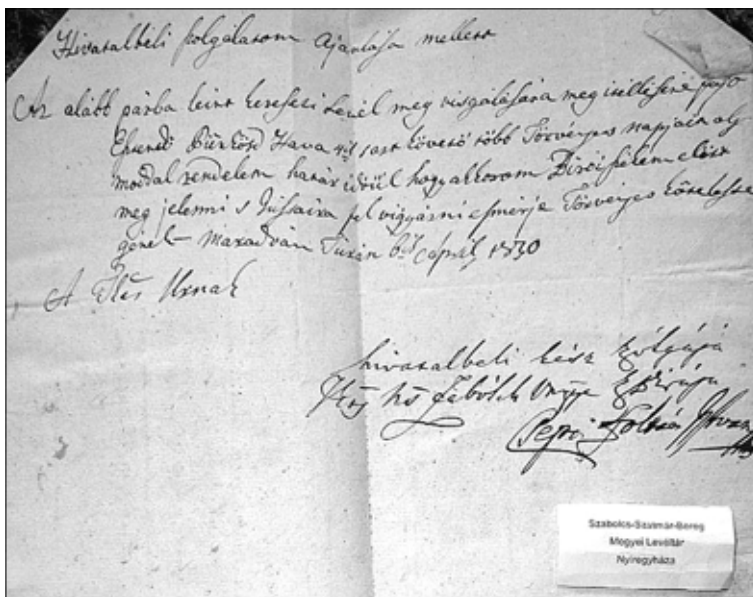 Hivatalbéli Szolgálatom Ajánlása mellett
Az alább párba leirt kereseti Levél meg visgálására meg itéllésére folyó
Esztendő Pünkösd Hava 4ik s azt követő több Törvényes napjait oly
moddal rendelem határ idöül hogy akkorára Birói székem elött
meg jelenni s Jussaira fel vigyázni esmérje Törvényes kötelessé
gének Maradván Turán 6ik April 1830
A Tktes Urnak
hivatalbeli kész szolgája
Ns Szabolch Vgye
Zoltán István
Szabolcs-Szatmár-Bereg
Megyei Levéltár
Nyíregyháza